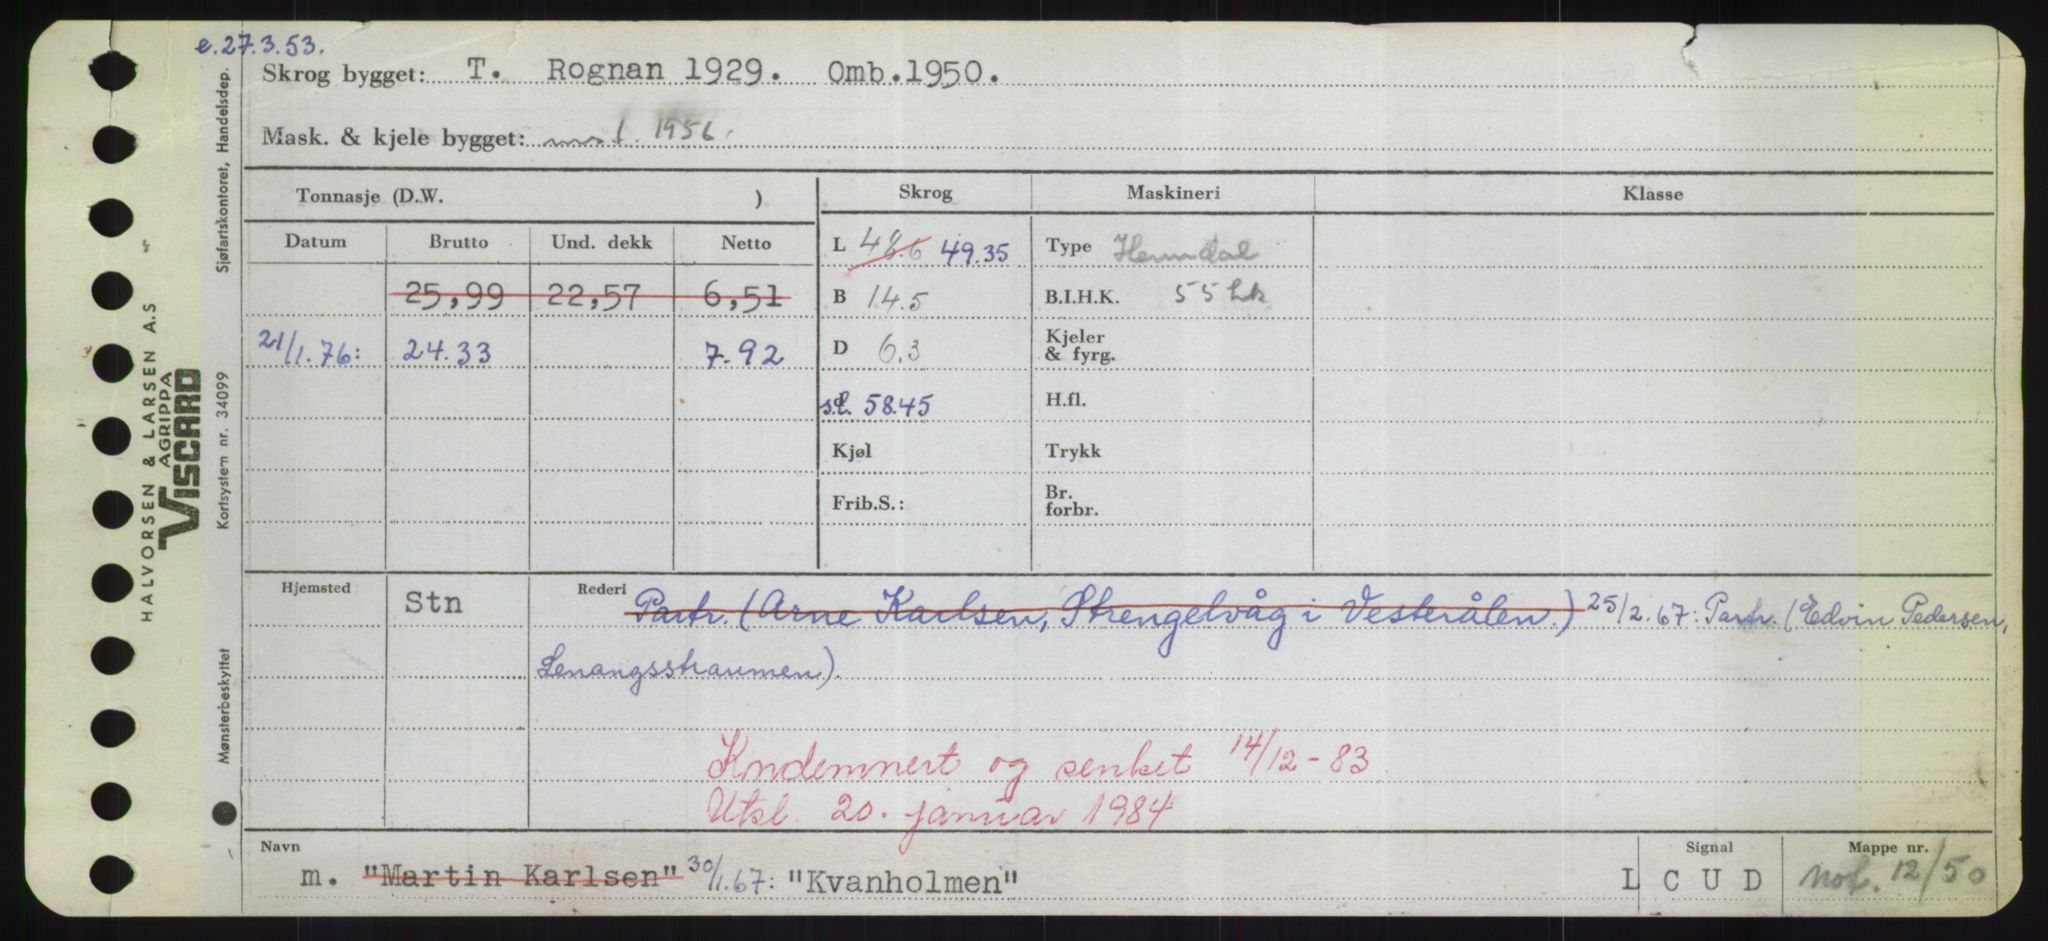 e.27.3.53.
Skrog bygget: T. Rognan 1929. Omb.1950.
Mask. & kjele bygget: 1956.
Tonnasje (D.W. ) Skrog Maskineri Klasse
Datum Brutto Und. dekk Netto
L 48.6 49.35 Type Hemndal
25,99 22,57 6,51 B 14.5 B.I.H.K. 55 hk
21/1.76: 24.33 7.92 D 6.3 Kjeler & fyrg.
s.l. 58.45 H.fl.
Kjøl Trykk
Frib.S.: Br. forbr.
Hjemsted Stn Rederi Partr. (Arne Karlsen, Strengelvåg i Vesterålen.) 25/2.67: Partr. (Edvin Pedersen,
Lenangsstraumen).
Kndemnert og senket 14/12-83.
Utsl. 20. januar 1984
Navn Signal Mappe nr.
m. "Martin Karlsen" 30/1.67: "Kvanholmen" L C U D not. 12/50
HALVORSEN & LARSEN A.S
AGRIPPA
VISCARD
Sjøfartskontoret, Handelsdep.
Kortsystem nr. 34099
Mønsterbeskyttet